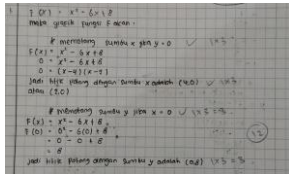 1. f(x) = x² - 6x + 8
maka grafik fungsi F akan :
# memotong sumbu x jika y = 0 ✓ 1×3
F(x) = x² - 6x + 8
0 = x² - 6x + 8
0 = (x-4)(x-2)
jadi titik potong dengan sumbu x adalah (4,0) ✓ 1×3
atau (2,0)
# memotong sumbu y jika x = 0 ✓ 1×3 = 3
F(x) = x² - 6x + 8
F(0) = 0² - 6(0) + 8
= 0 - 0 + 8
12
= 8
jadi titik potong dengan sumbu y adalah (0,8) 1×3 = 3